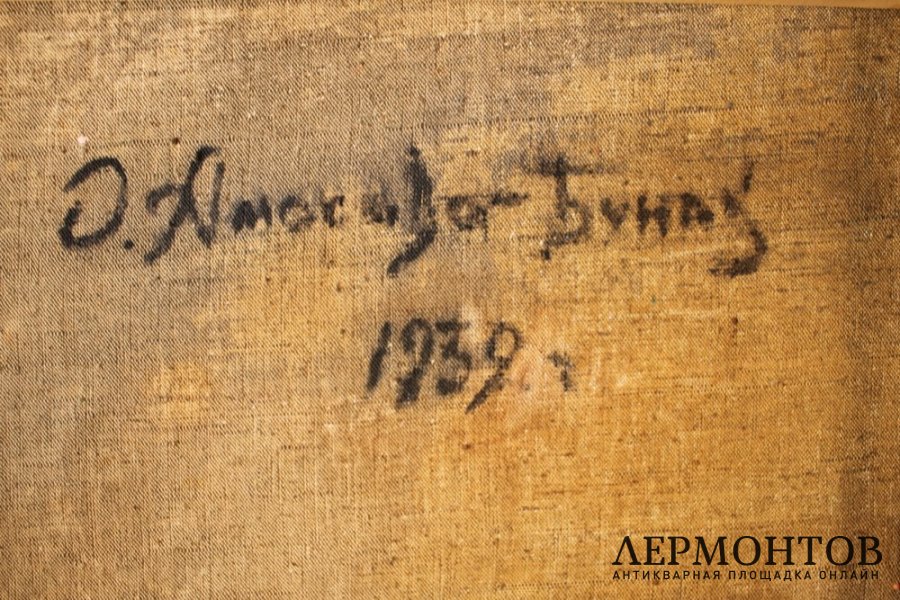 О. Амосова-Бунак
1939 г
ЛЕРМОНТОВ
АНТИКВАРНАЯ ПЛОЩАДКА ОНЛАЙН